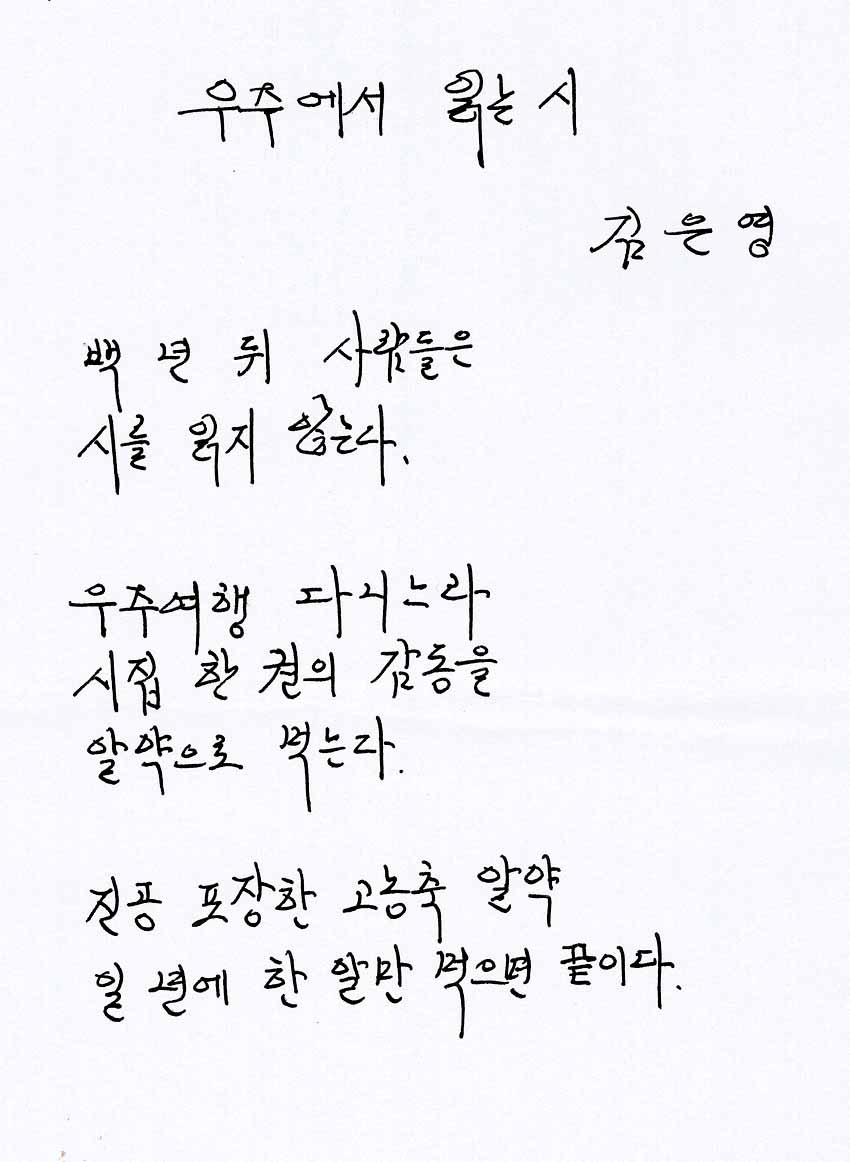 우주에서 읽는 시
김은영
백 년 뒤 사람들은
시를 읽지 않는다.
우주여행 다니느라
시집 한 권의 감동을
알약으로 먹는다.
진공 포장한 고농축 알약
일 년에 한 알만 먹으면 끝이다.